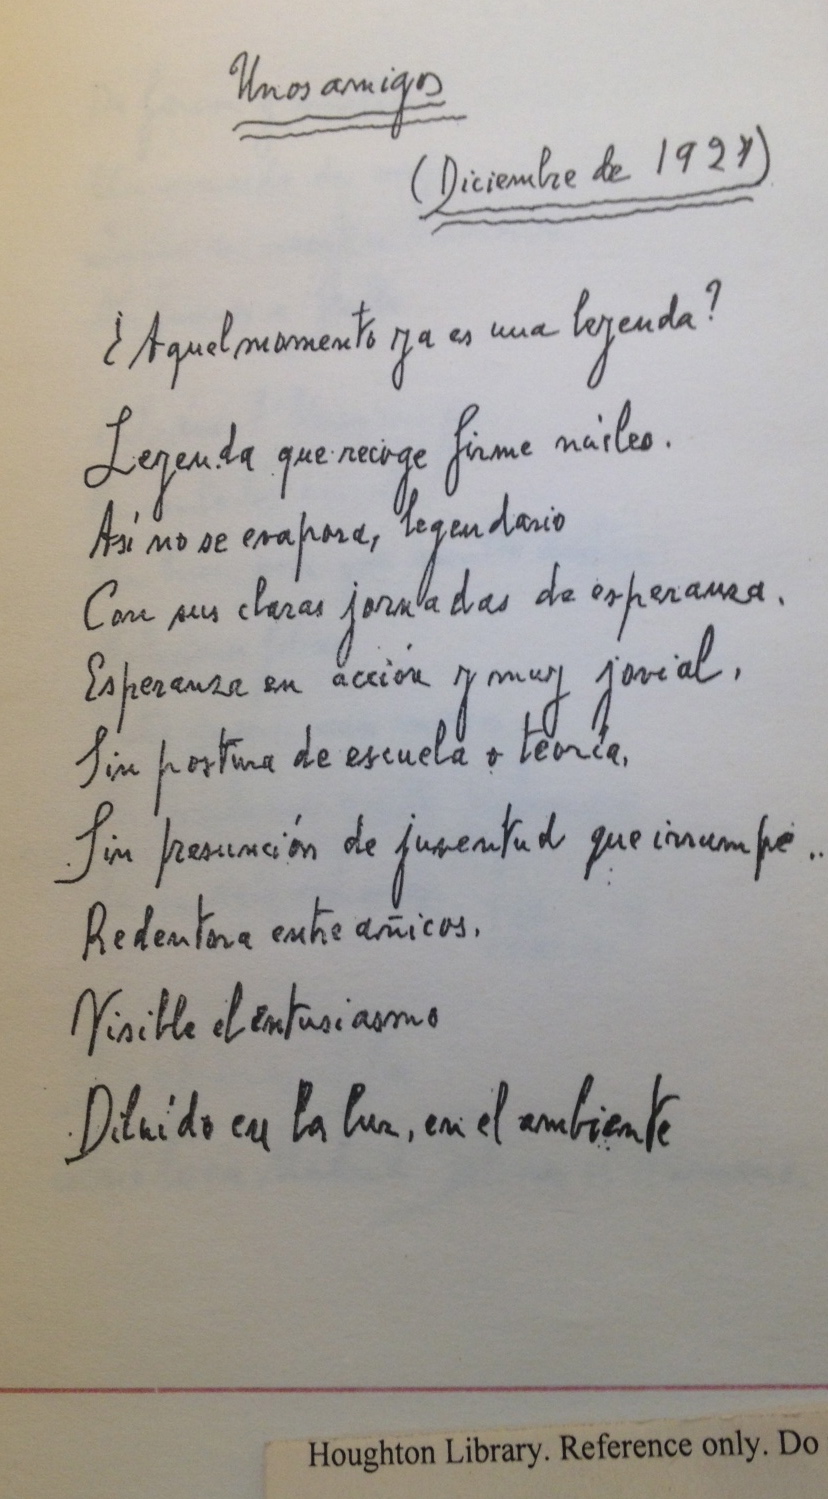 Unos amigos
(Diciembre de 1927)
¿Aquel momento ya es una leyenda?
Leyenda que recoge firme núcleo.
Así no se evapora, legendario
Con sus claras jornadas de esperanza.
Esperanza en acción y muy jovial,
Sin postura de escuela o teoría,
Sin presunción de juventud que irrumpe..
Redentora entre añicos.
Visible el entusiasmo
Diluído en la luz, en el ambiente
Houghton Library. Reference only. Do